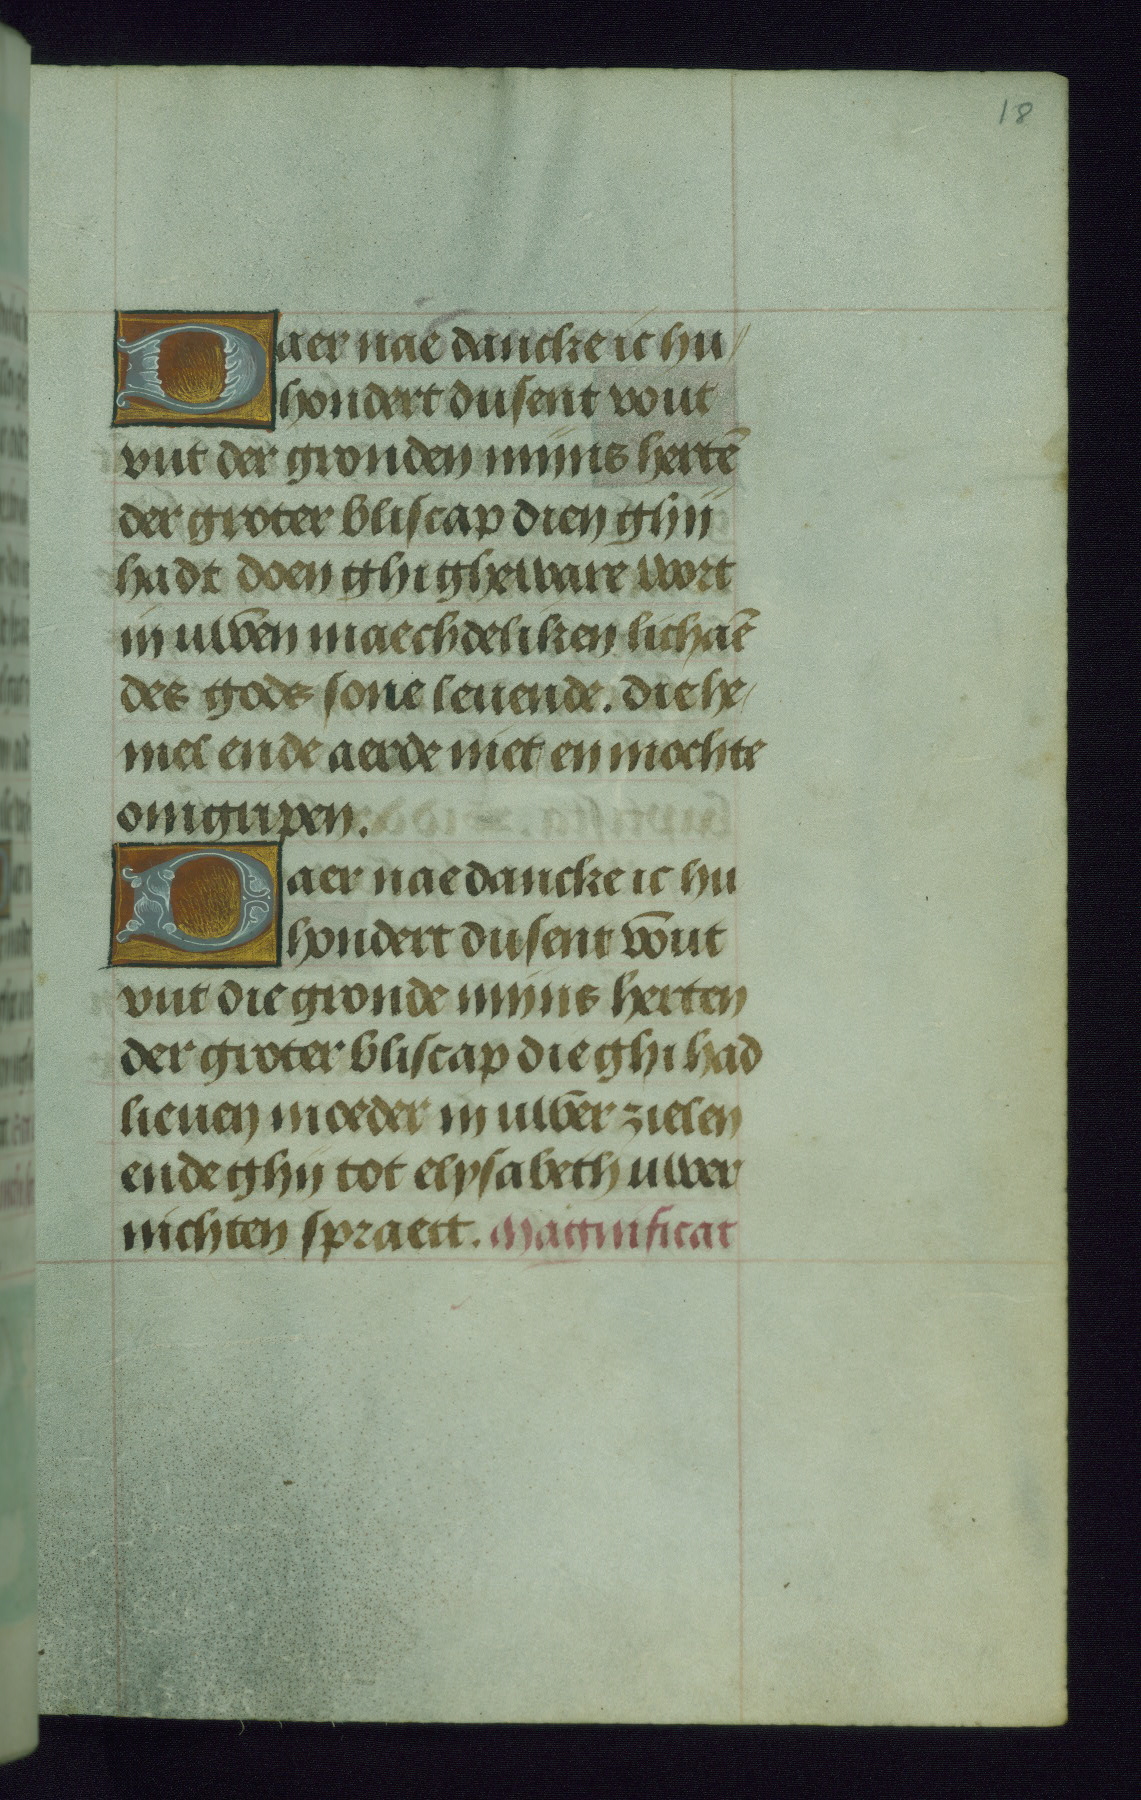 18
Daer nae dancke ic hu
hondert dusent vout
vut der gronden mijns hertē
der groter bliscap dien ghij
hadt doen ghi gheware wort
in uwēn maechdeliken lichaē
des gods sone leuende. die he
mel ende aerde niet en mochte
omgripen.
Daer nae dancke ic hu
hondert dusent vōut
vut die gronde mijns herten
der groter bliscap die ghi had
lieuen moeder in uwēr zielen
ende ghij tot elysabeth uwer
nichten spraect. Magnificat